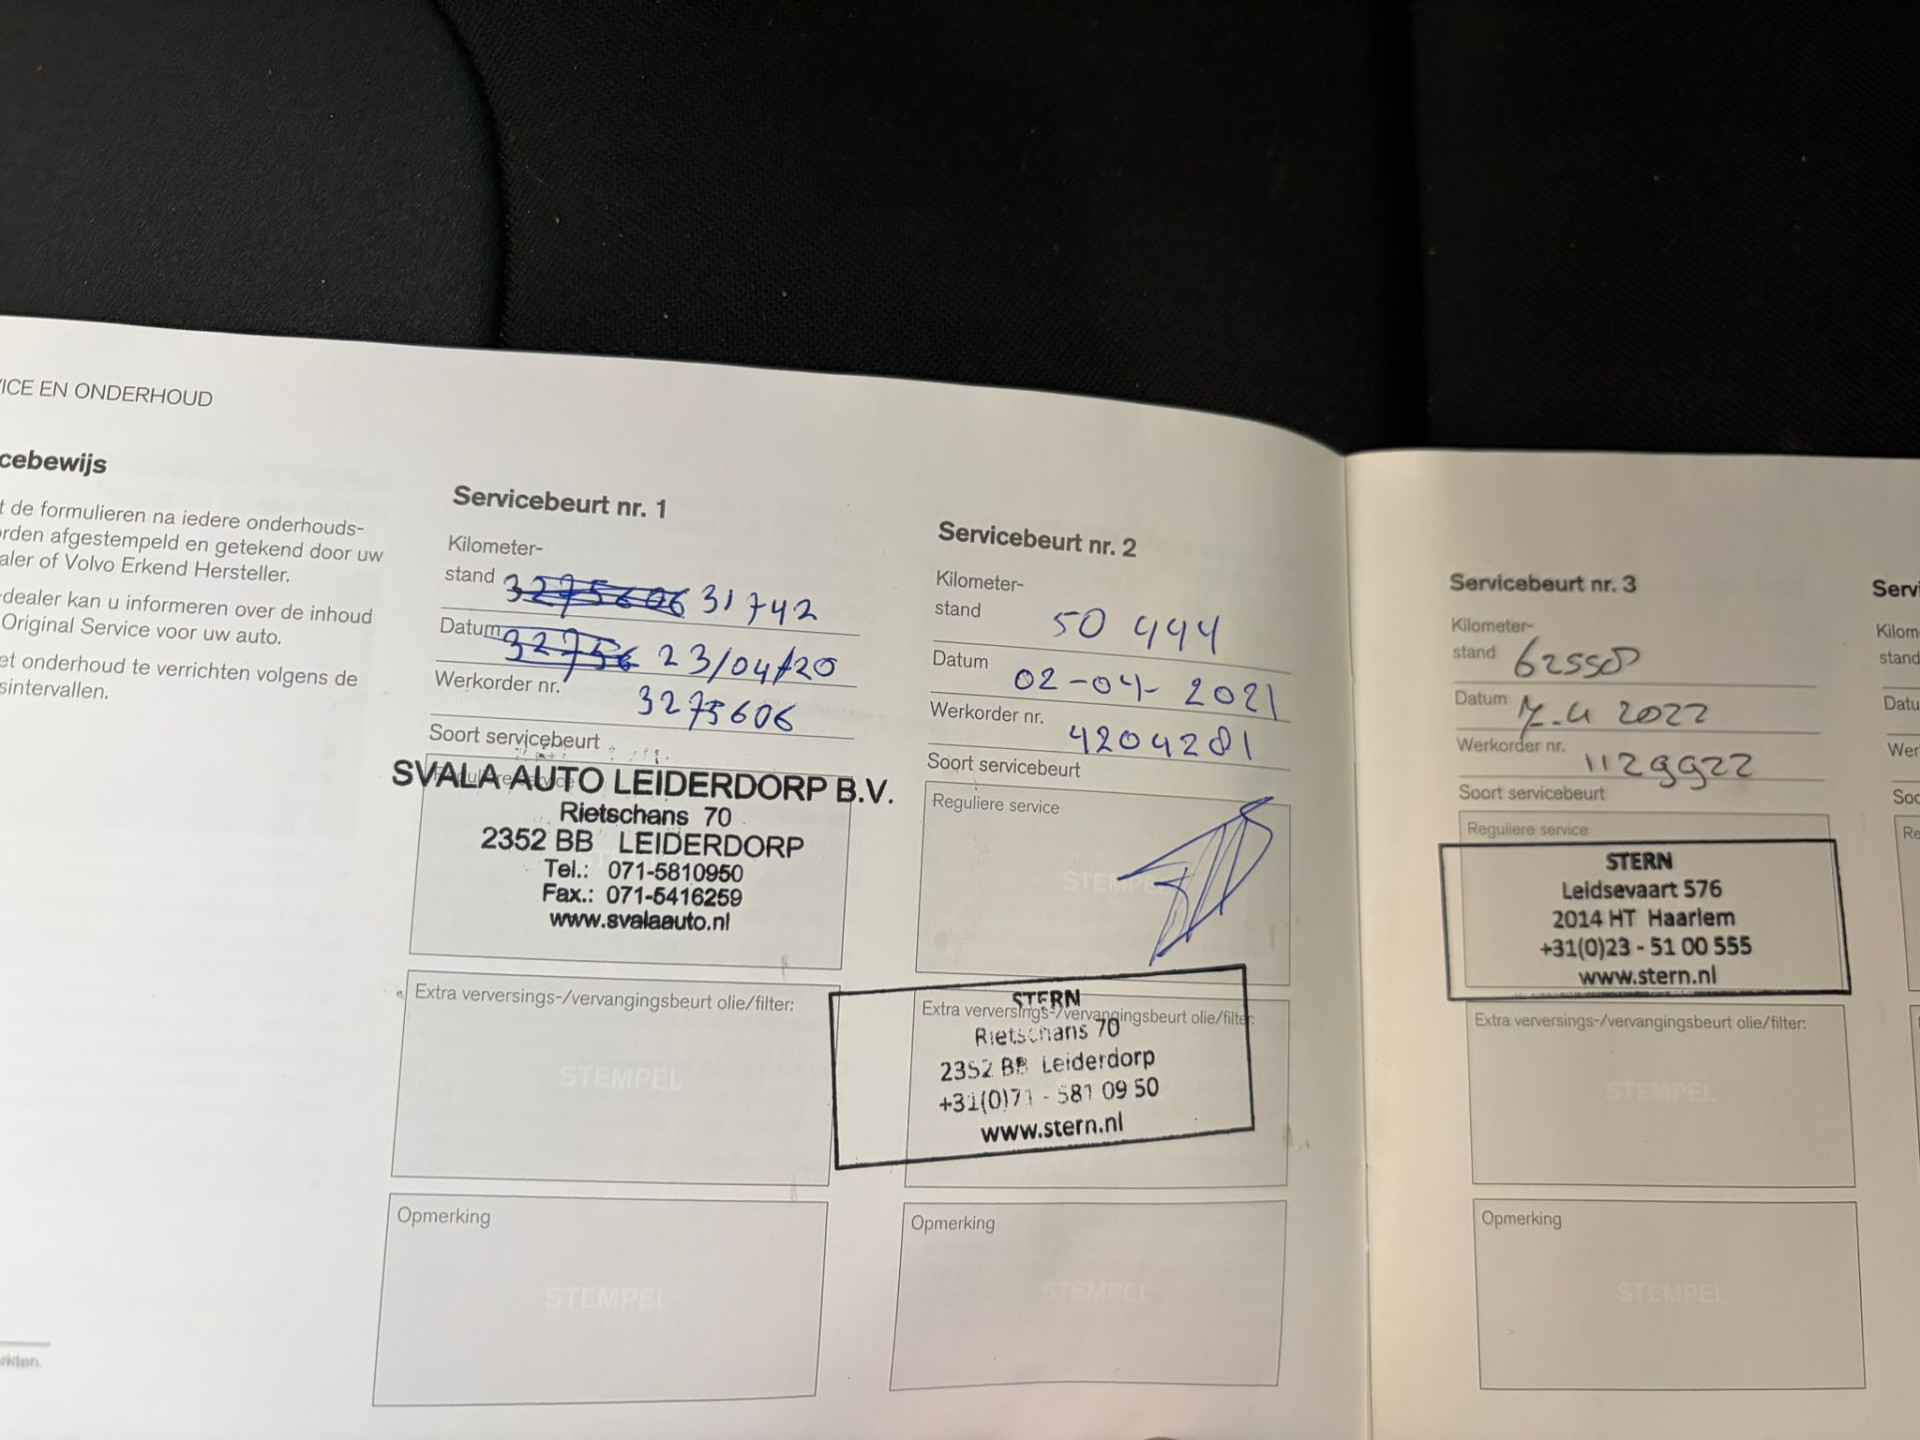 ICE EN ONDERHOUD
cebewijs
t de formulieren na iedere onderhouds-
rden afgestempeld en getekend door uw
aler of Volvo Erkend Hersteller.
dealer kan u informeren over de inhoud
Original Service voor uw auto.
et onderhoud te verrichten volgens de
sintervallen.
Servicebeurt nr. 1
Kilometer-
stand 3275606 31742
Datum 32756 23/04/20
Werkorder nr. 3275606
Soort servicebeurt
SVALA AUTO LEIDERDORP B.V.
Rietschans 70
2352 BB LEIDERDORP
Tel.: 071-5810950
Fax.: 071-5416259
www.svalaauto.nl
Extra verversings-/vervangingsbeurt olie/filter:
STEMPEL
Opmerking
STEMPEL
Servicebeurt nr. 2
Kilometer-
stand 50 444
Datum 02-04-2021
Werkorder nr. 4204281
Soort servicebeurt
Reguliere service
STEMPEL
Extra verversings-/vervangingsbeurt olie/filter:
STERN
Rietschans 70
2352 BB Leiderdorp
+31(0)71 - 581 09 50
www.stern.nl
Opmerking
STEMPEL
Servicebeurt nr. 3
Kilometer-
stand
Datum 2022
Werkorder nr. 1129922
Soort servicebeurt
Reguliere service
STERN
Leidsevaart 576
2014 HT Haarlem
+31(0)23 - 51 00 555
www.stern.nl
Extra verversings-/vervangingsbeurt olie/filter:
STEMPEL
Opmerking
STEMPEL
Servi
Kilom
stand
Datu
Wer
Soo
Re